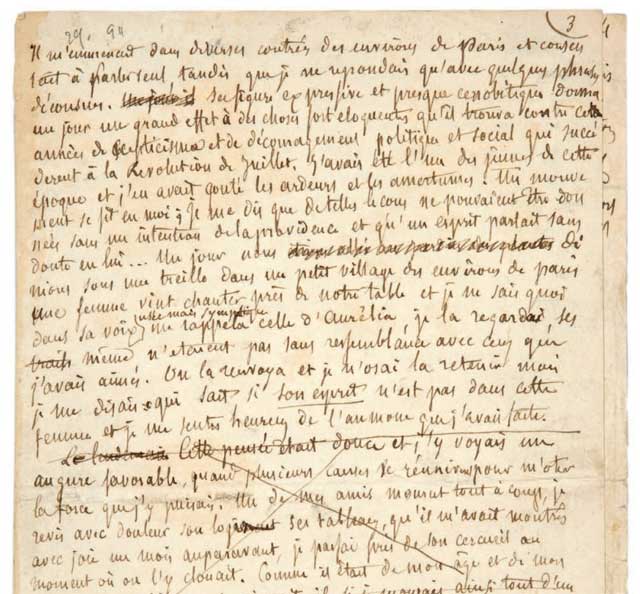 29. 94
3
Il m'emmenait dans diverses contrés des environs de Paris et consen
tait à parler seul tandis que je ne repondais qu'avec quelques phrases
décousues. sa figure expressive et presque cenobitique donna
un jour une grand effet à des choses fort eloquentes qu'il trouva contre cette
années de scepticisme et de découragement politique et social qui succe
derent à la Revolution de Juillet. J'avais été l'un des jeunes de cette
époque et j'en avait gouté les ardeurs et les amertumes. Un mouve
ment se fit en moi ; je me dis que de telles lecons ne pouvaient être don
nées sans une intention de la providence et qu'un esprit parlait sans
doute en lui... Un jour nous di
nions sous une treille dans un petit village des environs de paris
une femme vint chanter près de notre table et je ne sais quoi
dans sa voix usée mais sympatique me rappela celle d'Aurélia, je la regardai ses
traits même n'etaient pas sans ressemblance avec ceux que
j'avais aimés. On la renvoya et je n'osai la retenir mais
je me disais : qui sait si son esprit n'est pas dans cette
femme et je me sentis heureux de l'aumone que j'avais faite.
Le lendemain Cette pensée était douce et j'y voyais un
augure favorable, quand plusieurs causes se réunirent pour m'oter
la force que j'y puisais. Un de mes amis mourut tout à coup, je
revis avec douleur son logement ses tableaux, qu'il m'avait montrés
avec joie un mois auparavant, je passai près de son cercueil au
moment où on l'y clouait. Comme il était de mon âge et de mon
ainsi tout d'un